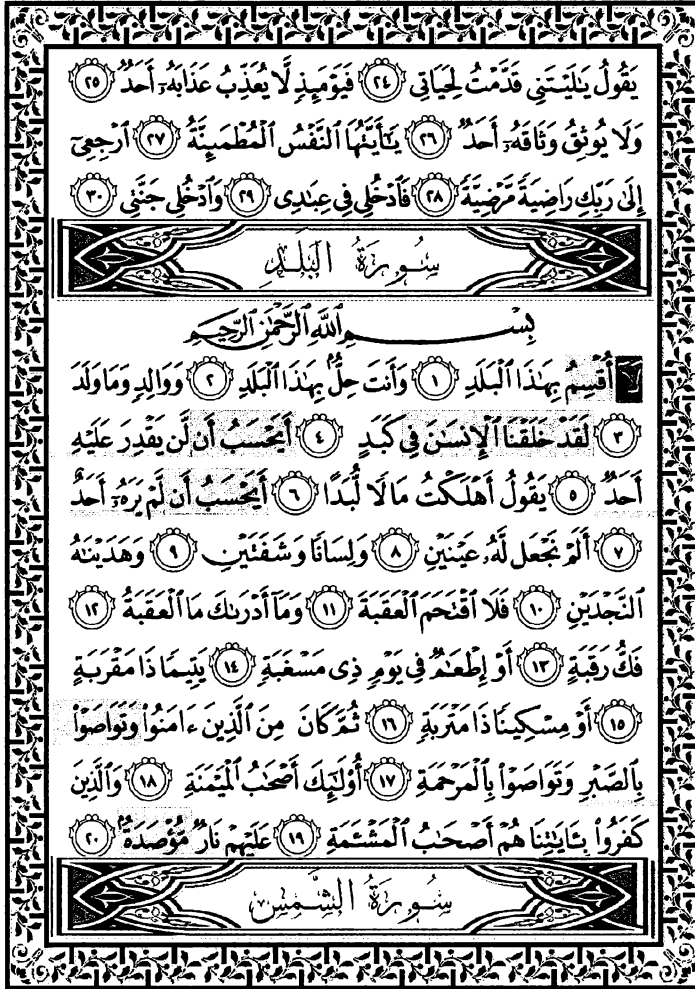 يَقُولُ يَـٰلَيْتَنِى قَدَّمْتُ لِحَيَاتِى ٢٤ فَيَوْمَئِذٍ لَّا يُعَذِّبُ عَذَابَهُۥٓ أَحَدٌ ٢٥
وَلَا يُوثِقُ وَثَاقَهُۥٓ أَحَدٌ ٢٦ يَـٰٓأَيَّتُهَا ٱلنَّفْسُ ٱلْمُطْمَئِنَّةُ ٢٧ ٱرْجِعِىٓ
إِلَىٰ رَبِّكِ رَاضِيَةً مَّرْضِيَّةً ٢٨ فَٱدْخُلِى فِى عِبَـٰدِى ٢٩ وَٱدْخُلِى جَنَّتِى ٣٠
سُورَةُ الْبَلَدِ
بِسْمِ ٱللَّهِ ٱلرَّحْمَـٰنِ ٱلرَّحِيمِ
لَآ أُقْسِمُ بِهَـٰذَا ٱلْبَلَدِ ١ وَأَنتَ حِلٌّۢ بِهَـٰذَا ٱلْبَلَدِ ٢ وَوَالِدٍ وَمَا وَلَدَ
٣ لَقَدْ خَلَقْنَا ٱلْإِنسَـٰنَ فِى كَبَدٍ ٤ أَيَحْسَبُ أَن لَّن يَقْدِرَ عَلَيْهِ
أَحَدٌ ٥ يَقُولُ أَهْلَكْتُ مَالًا لُّبَدًا ٦ أَيَحْسَبُ أَن لَّمْ يَرَهُۥٓ أَحَدٌ
٧ أَلَمْ نَجْعَل لَّهُۥ عَيْنَيْنِ ٨ وَلِسَانًا وَشَفَتَيْنِ ٩ وَهَدَيْنَـٰهُ
ٱلنَّجْدَيْنِ ١٠ فَلَا ٱقْتَحَمَ ٱلْعَقَبَةَ ١١ وَمَآ أَدْرَىٰكَ مَا ٱلْعَقَبَةُ ١٢
فَكُّ رَقَبَةٍ ١٣ أَوْ إِطْعَـٰمٌ فِى يَوْمٍ ذِى مَسْغَبَةٍ ١٤ يَتِيمًا ذَا مَقْرَبَةٍ
١٥ أَوْ مِسْكِينًا ذَا مَتْرَبَةٍ ١٦ ثُمَّ كَانَ مِنَ ٱلَّذِينَ ءَامَنُوا۟ وَتَوَاصَوْا۟
بِٱلصَّبْرِ وَتَوَاصَوْا۟ بِٱلْمَرْحَمَةِ ١٧ أُو۟لَـٰٓئِكَ أَصْحَـٰبُ ٱلْمَيْمَنَةِ ١٨ وَٱلَّذِينَ
كَفَرُوا۟ بِـَٔايَـٰتِنَا هُمْ أَصْحَـٰبُ ٱلْمَشْـَٔمَةِ ١٩ عَلَيْهِمْ نَارٌ مُّؤْصَدَةٌۢ ٢٠
سُورَةُ الشَّمْسِ